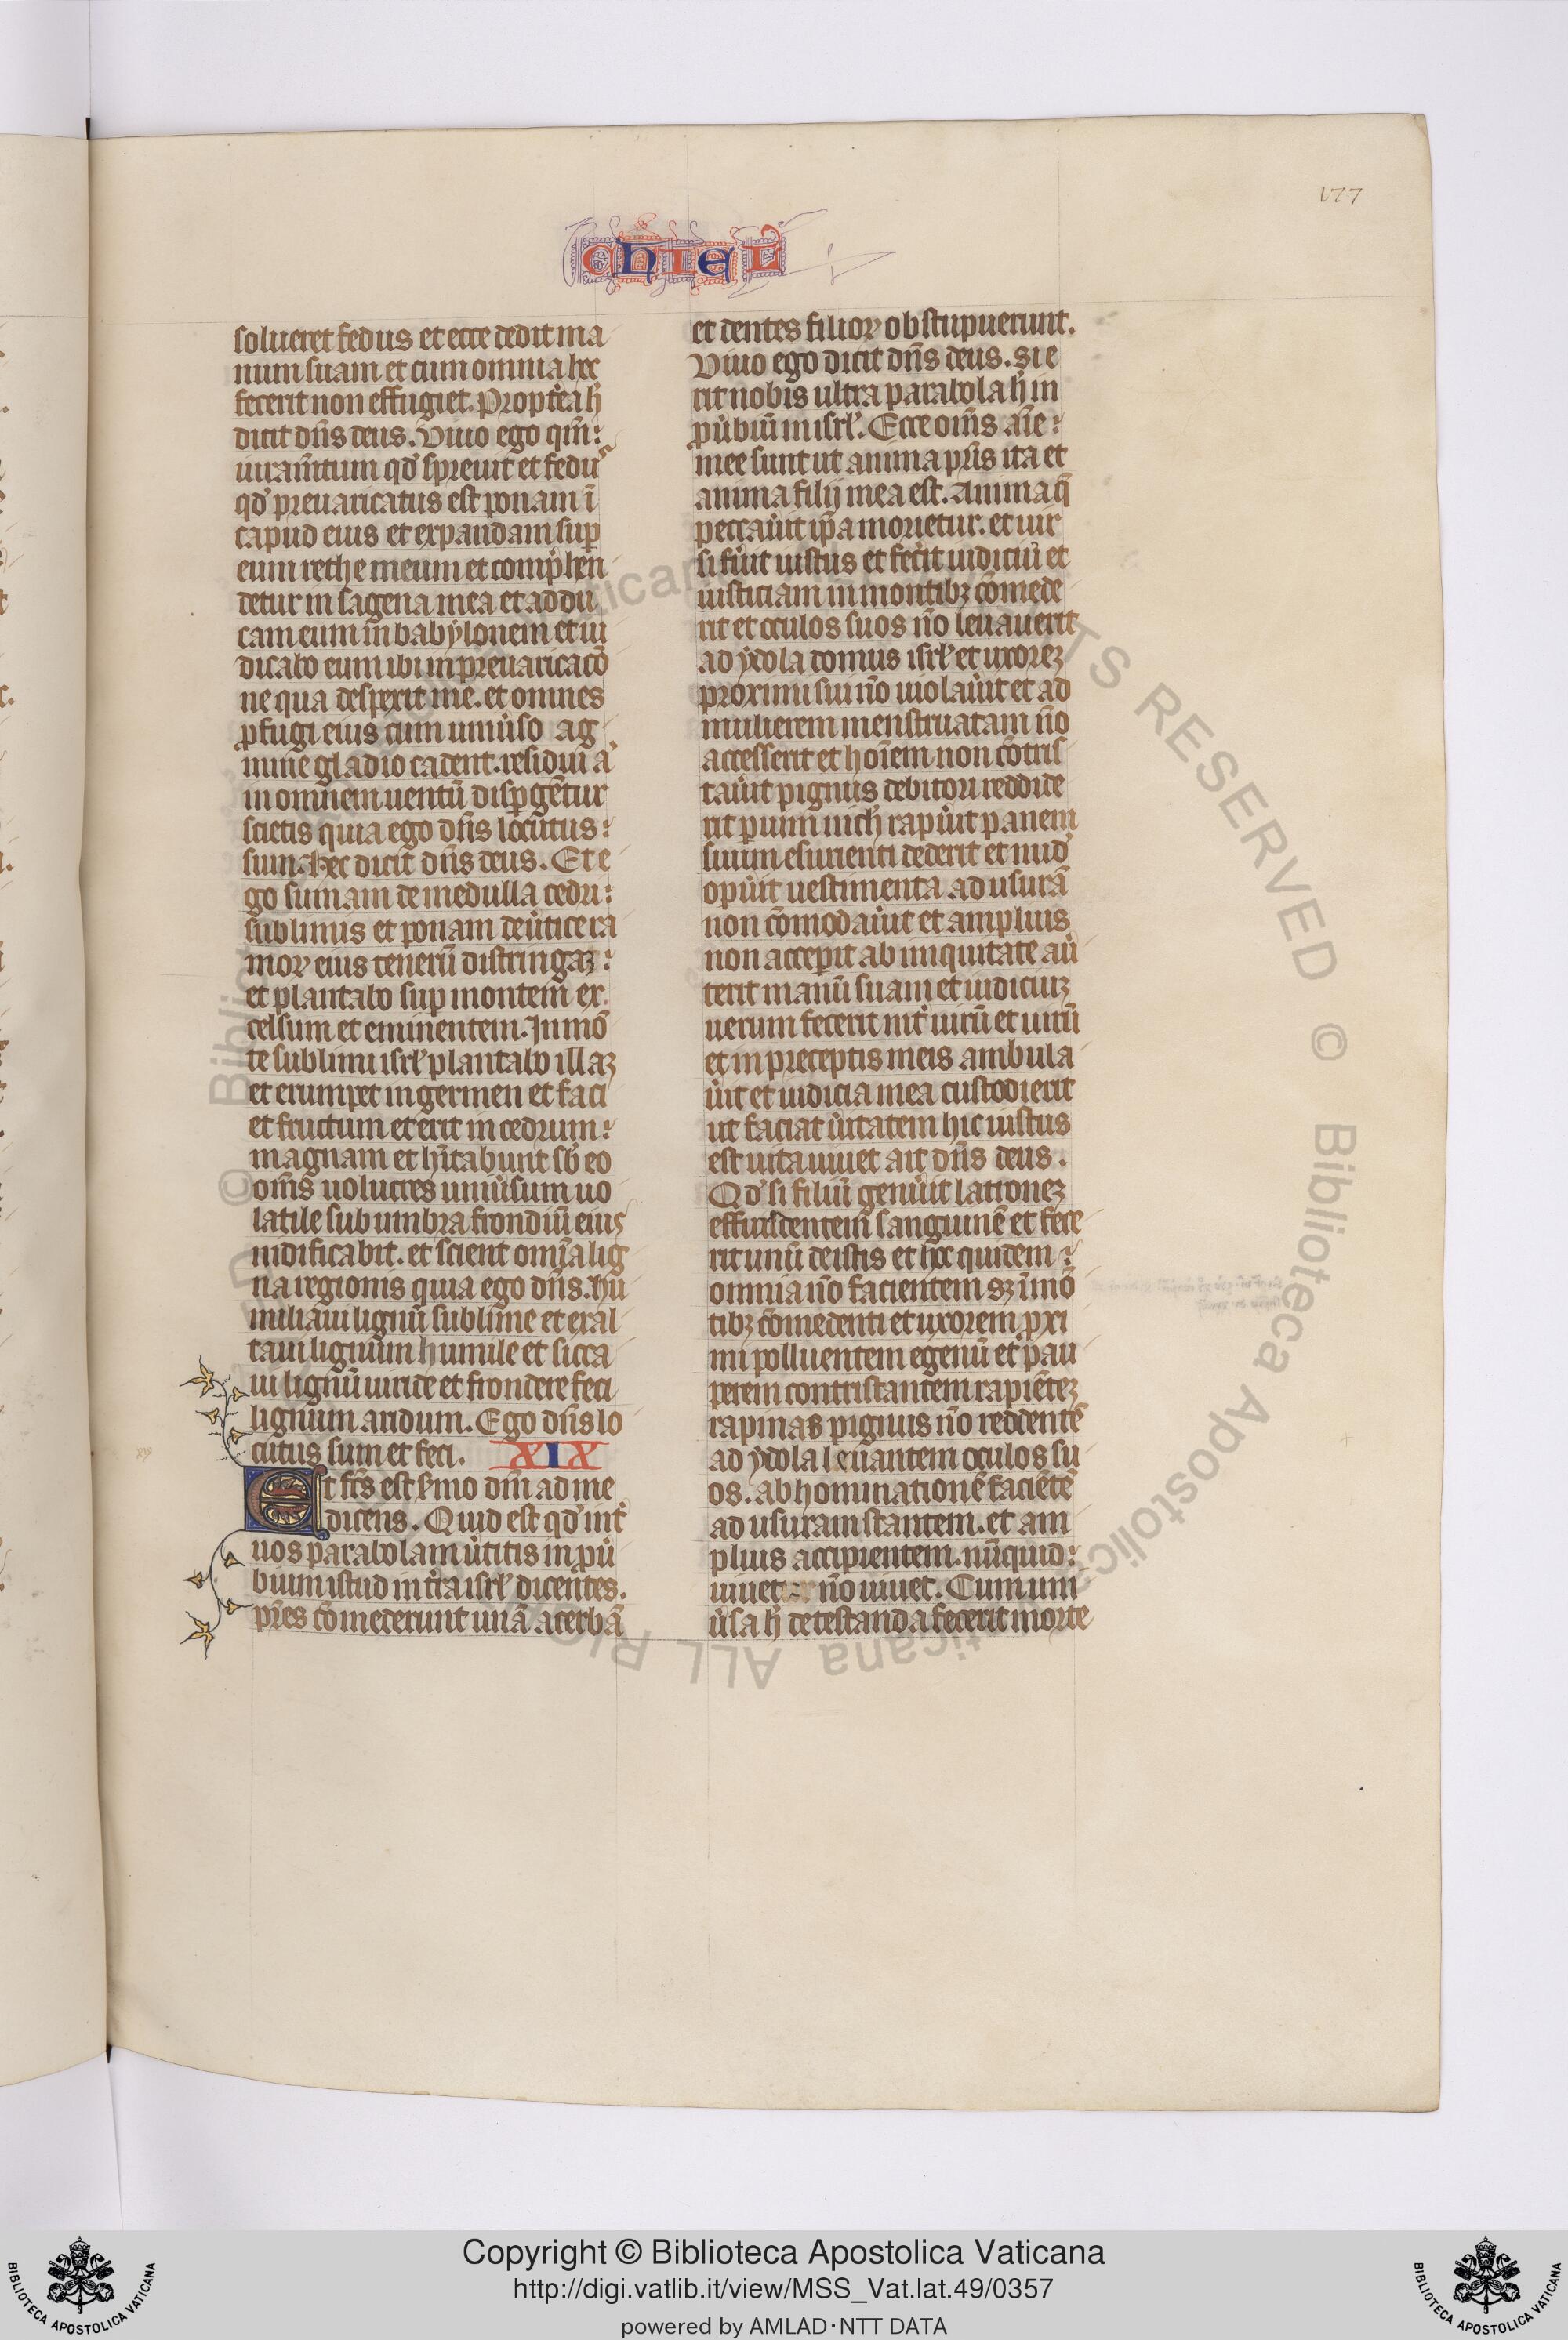 177
CHIEL
solueret fedus et ecce dedit ma
num suam et cum omnia hec
fecerit non effugiet. Propt̾ea h̾
dicit dn̄s deus. Viuo ego qm̄:
iuram̄tum qd̾ spreuit et fedus
qd̾ preuaricatus est ponam ī
capud eius et expandam sup̱
eum rethe meum et comp̾hen
detur in sagena mea et addu
cam eum in babylonem et iu
dicabo eum ibi in preuaricacō
ne qua despexit me. et omnes
ꝓfugi eius cum uniu̾so ag
mine gladio cadent. residui a̾
in omnem uentū disp̱gētur
scietis quia ego dn̄s locutus:
sum. hec dicit dn̄s deus. Et e
go sumam de medulla cedri:
sublimis et ponam de u̾tice ra
moꝝ eius tenerū distringaꝫ:
et plantabo sup̱ montem ex
celsum et eminentem. In mō
te sublimi isrl̾ plantabo illaꝫ
et erumpet in germen et faci
et fructum et erit in cedrum:
magnam et hītabunt sb̾ eo
om̄s uolucres uniu̾sum uo
latile sub umbra frondiū eius
nidificabit. et scient om̄ia lig
na regionis quia ego dn̄s. hu
miliaui lignū sublime et exal
taui lignum humile et sicca
ui lignū uiride et frondere feci
lignum aridum. Ego dn̄s lo
cutus sum et feci. XIX
Et fc̄s est s̾mo dn̄i ad me
dicens. Quid est qd̾ int̾
uos parabolam u̾titis in ꝓu̾
bium istud in t̾ra isrl̾ dicentes.
pr̄es cōmederunt uuā acerbā
et dentes filioꝝ obstupuerunt.
Viuo ego dicit dn̄s deus. si e
rit nobis ultra parabola h̾ in
ꝓu̾biū in isrl̾. Ecce om̄s aīe:
mee sunt ut anima pr̄is ita et
anima filij mea est. Anima q̄
peccau̾it ip̄a morietur. et uir
si fu̾it iustus et fec̾it iudiciū et
iusticiam in montibꝫ cōmede
rit et oculos suos nō leuauerit
ad ydola domus isrl̾ et uxoreꝫ
proximi sui nō uiolau̾it et ad
mulierem menstruatam nō
accesserit et hoīem non cōtris
tau̾it pignus debitori reddide
rit p̱ uim nich̾ rapu̾it panem
suum esurienti dederit et nud̾
op̱u̾it uestimenta. ad usurā
non cōmodau̾it et amplius
non accep̱it ab iniquitate au̾
terit manū suam et iudiciuꝫ
uerum fecerit int̾ uirū et uirū
et in preceptis meis ambula
u̾it et iudicia mea custodierit
ut faciat u̾itatem hic iustus
est uita uiuet ait dn̄s deus.
Qd̾ si filiū genu̾it latroneꝫ
effundentem sanguinē et fece
rit unū de istis et hec quidem:
omnia nō facientem sꝫ ī mō
tibꝫ cōmedenti et uxorem ꝓxi
mi polluentem egenū et pau
perem contristantem rapiēteꝫ
rapinas pignus nō reddentē
ad ydola leuantem oculos su
os. abhominationē faciētē
ad usuram stantem. et am
plius accipientem. nūquid:
uiuet nō uiuet. Cum uni
u̾sa h̾ detestanda fecerit morte
© Biblioteca Apostolica Vaticana ALL RIGHTS RESERVED
Copyright © Biblioteca Apostolica Vaticana
http://digi.vatlib.it/view/MSS_Vat.lat.49/0357
powered by AMLAD·NTT DATA
BIBLIOTECA APOSTOLICA VATICANA
BIBLIOTECA APOSTOLICA VATICANA